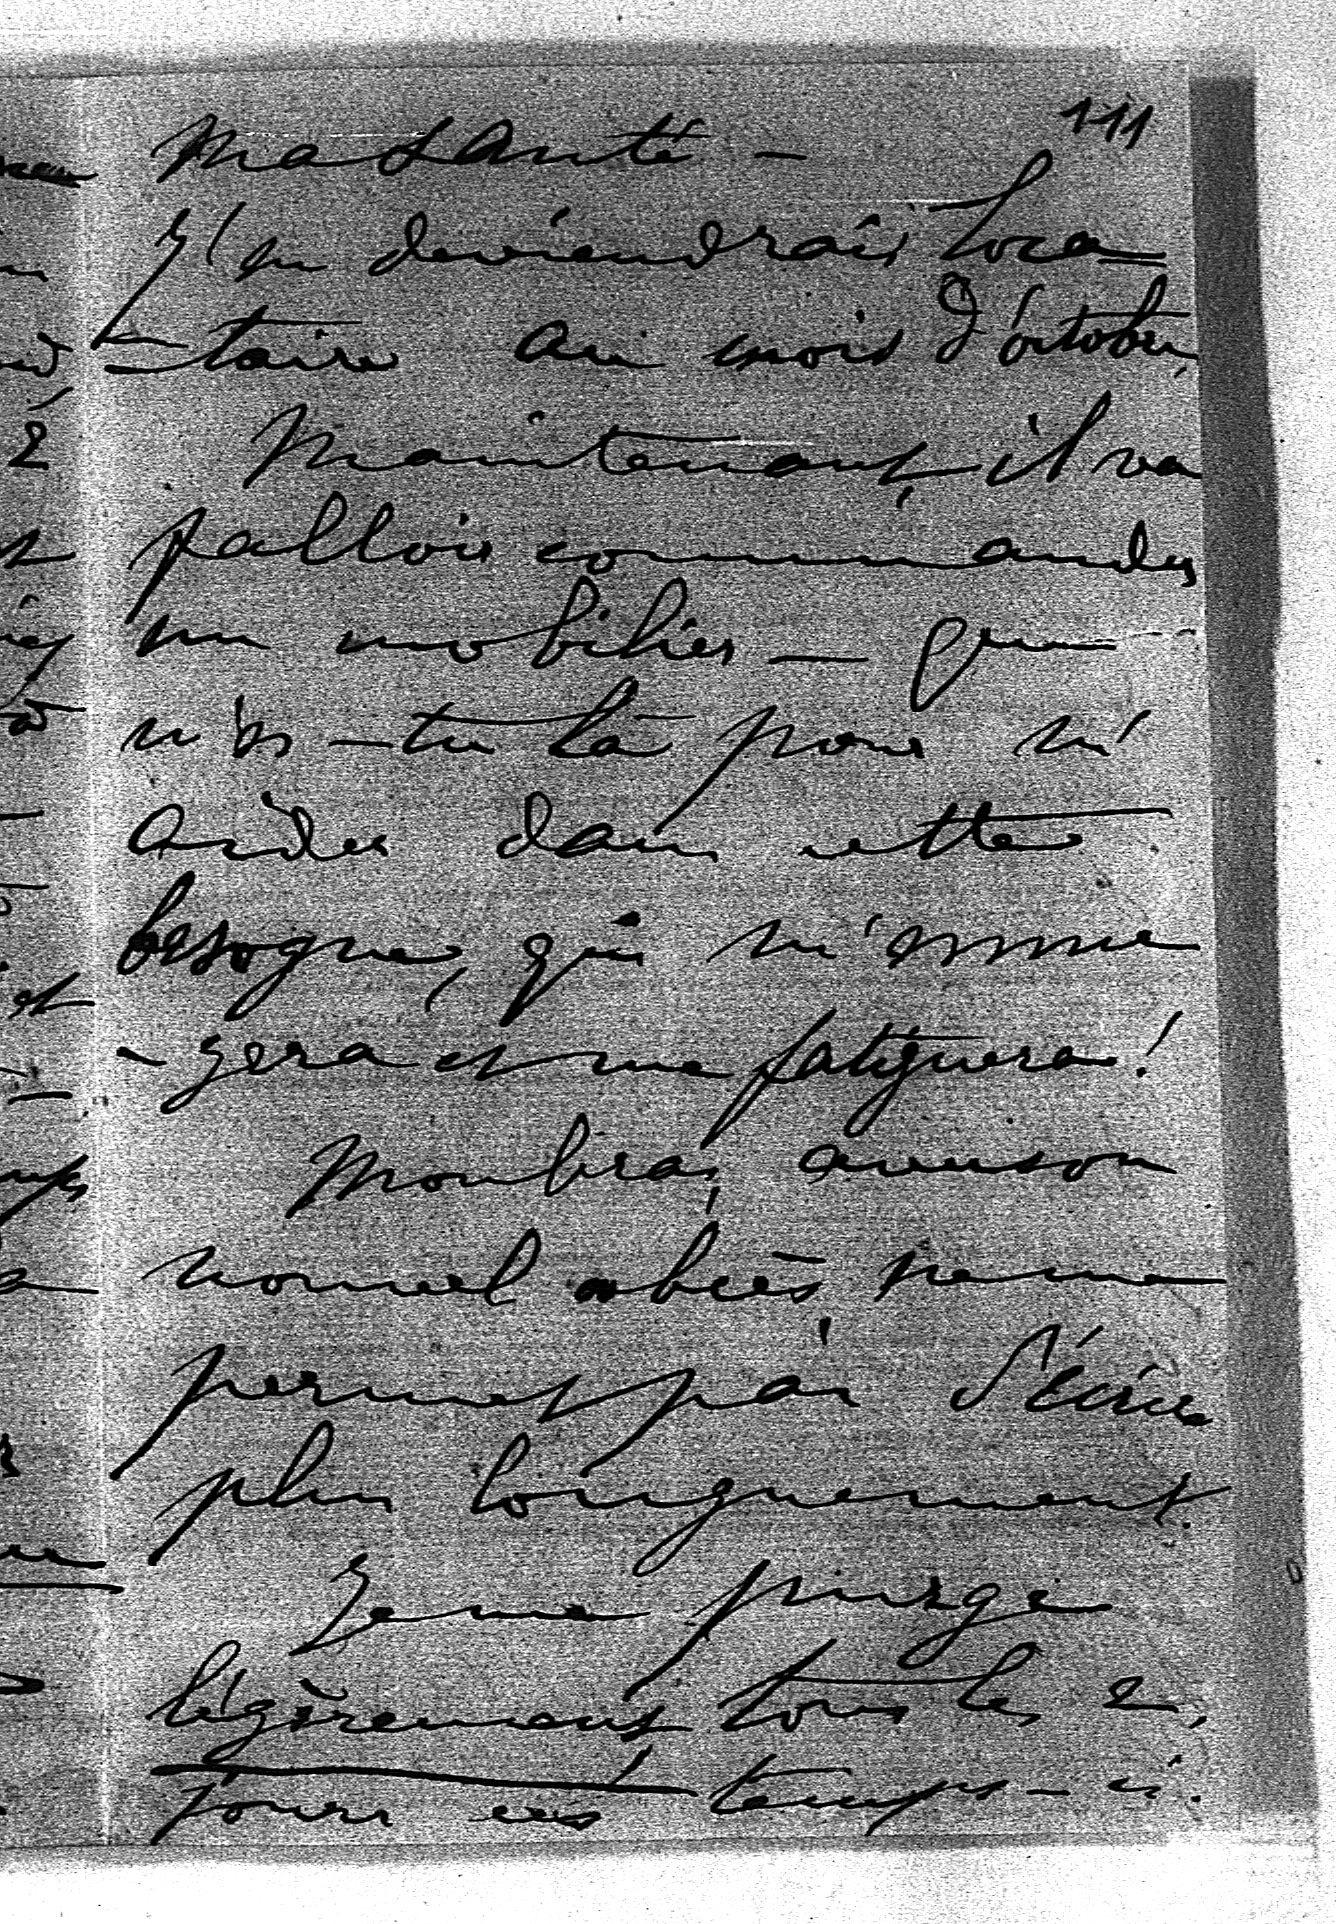 111
ma santé —
J'en deviendrais loca
— taire au mois d'octobre,
Maintenant, il va
falloir commander
un mobilier — que
n'es-tu là pour m'
aider dans cette
besogne, qui m'ennuie
- gera et me fatiguera!
Mon bras, avec son
nouvel abcès ne me
permet pas d'écrire
plus longuement.
Je me purge
légèrement tous les 2,
jours ces temps-ci.